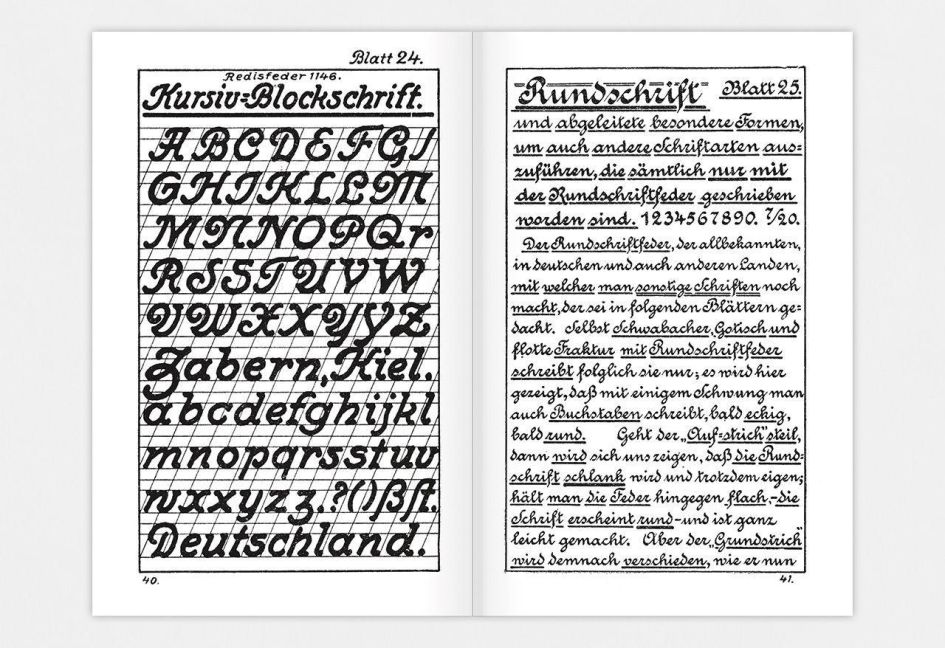 Blatt 24.
Redisfeder 1146.
Kursiv=Blockschrift.
A B C D E F G I
G H I K L L M
M N N O P Q r
R S S T U V W
V W X X Y Y Z
Zabern, Kiel.
a b c d e f g h i j k l
m n o p q r s s t u v
w x x y z z . ? ( ) ß ſt.
Deutschland.
40.
Rundschrift Blatt 25.
und abgeleitete besondere Formen,
um auch andere Schriftarten aus=
zuführen, die sämtlich nur mit
der Rundschriftfeder geschrieben
worden sind. 1234567890. 7/20.
Der Rundschriftfeder, der allbekannten,
in deutschen und auch anderen Landen,
mit welcher man sonstige Schriften noch
macht, der sei in folgenden Blättern ge=
dacht. Selbst Schwabacher, Gotisch und
flotte Fraktur mit Rundschriftfeder
schreibt folglich sie nur; es wird hier
gezeigt, daß mit einigem Schwung man
auch Buchstaben schreibt, bald eckig,
bald rund. Geht der „Auf=strich" steil,
dann wird sich uns zeigen, daß die Rund=
schrift schlank wird und trotzdem eigen;
hält man die Feder hingegen flach,–die
Schrift erscheint rund–und ist ganz
leicht gemacht. Aber der „Grundstrich"
wird demnach verschieden, wie er nun
41.